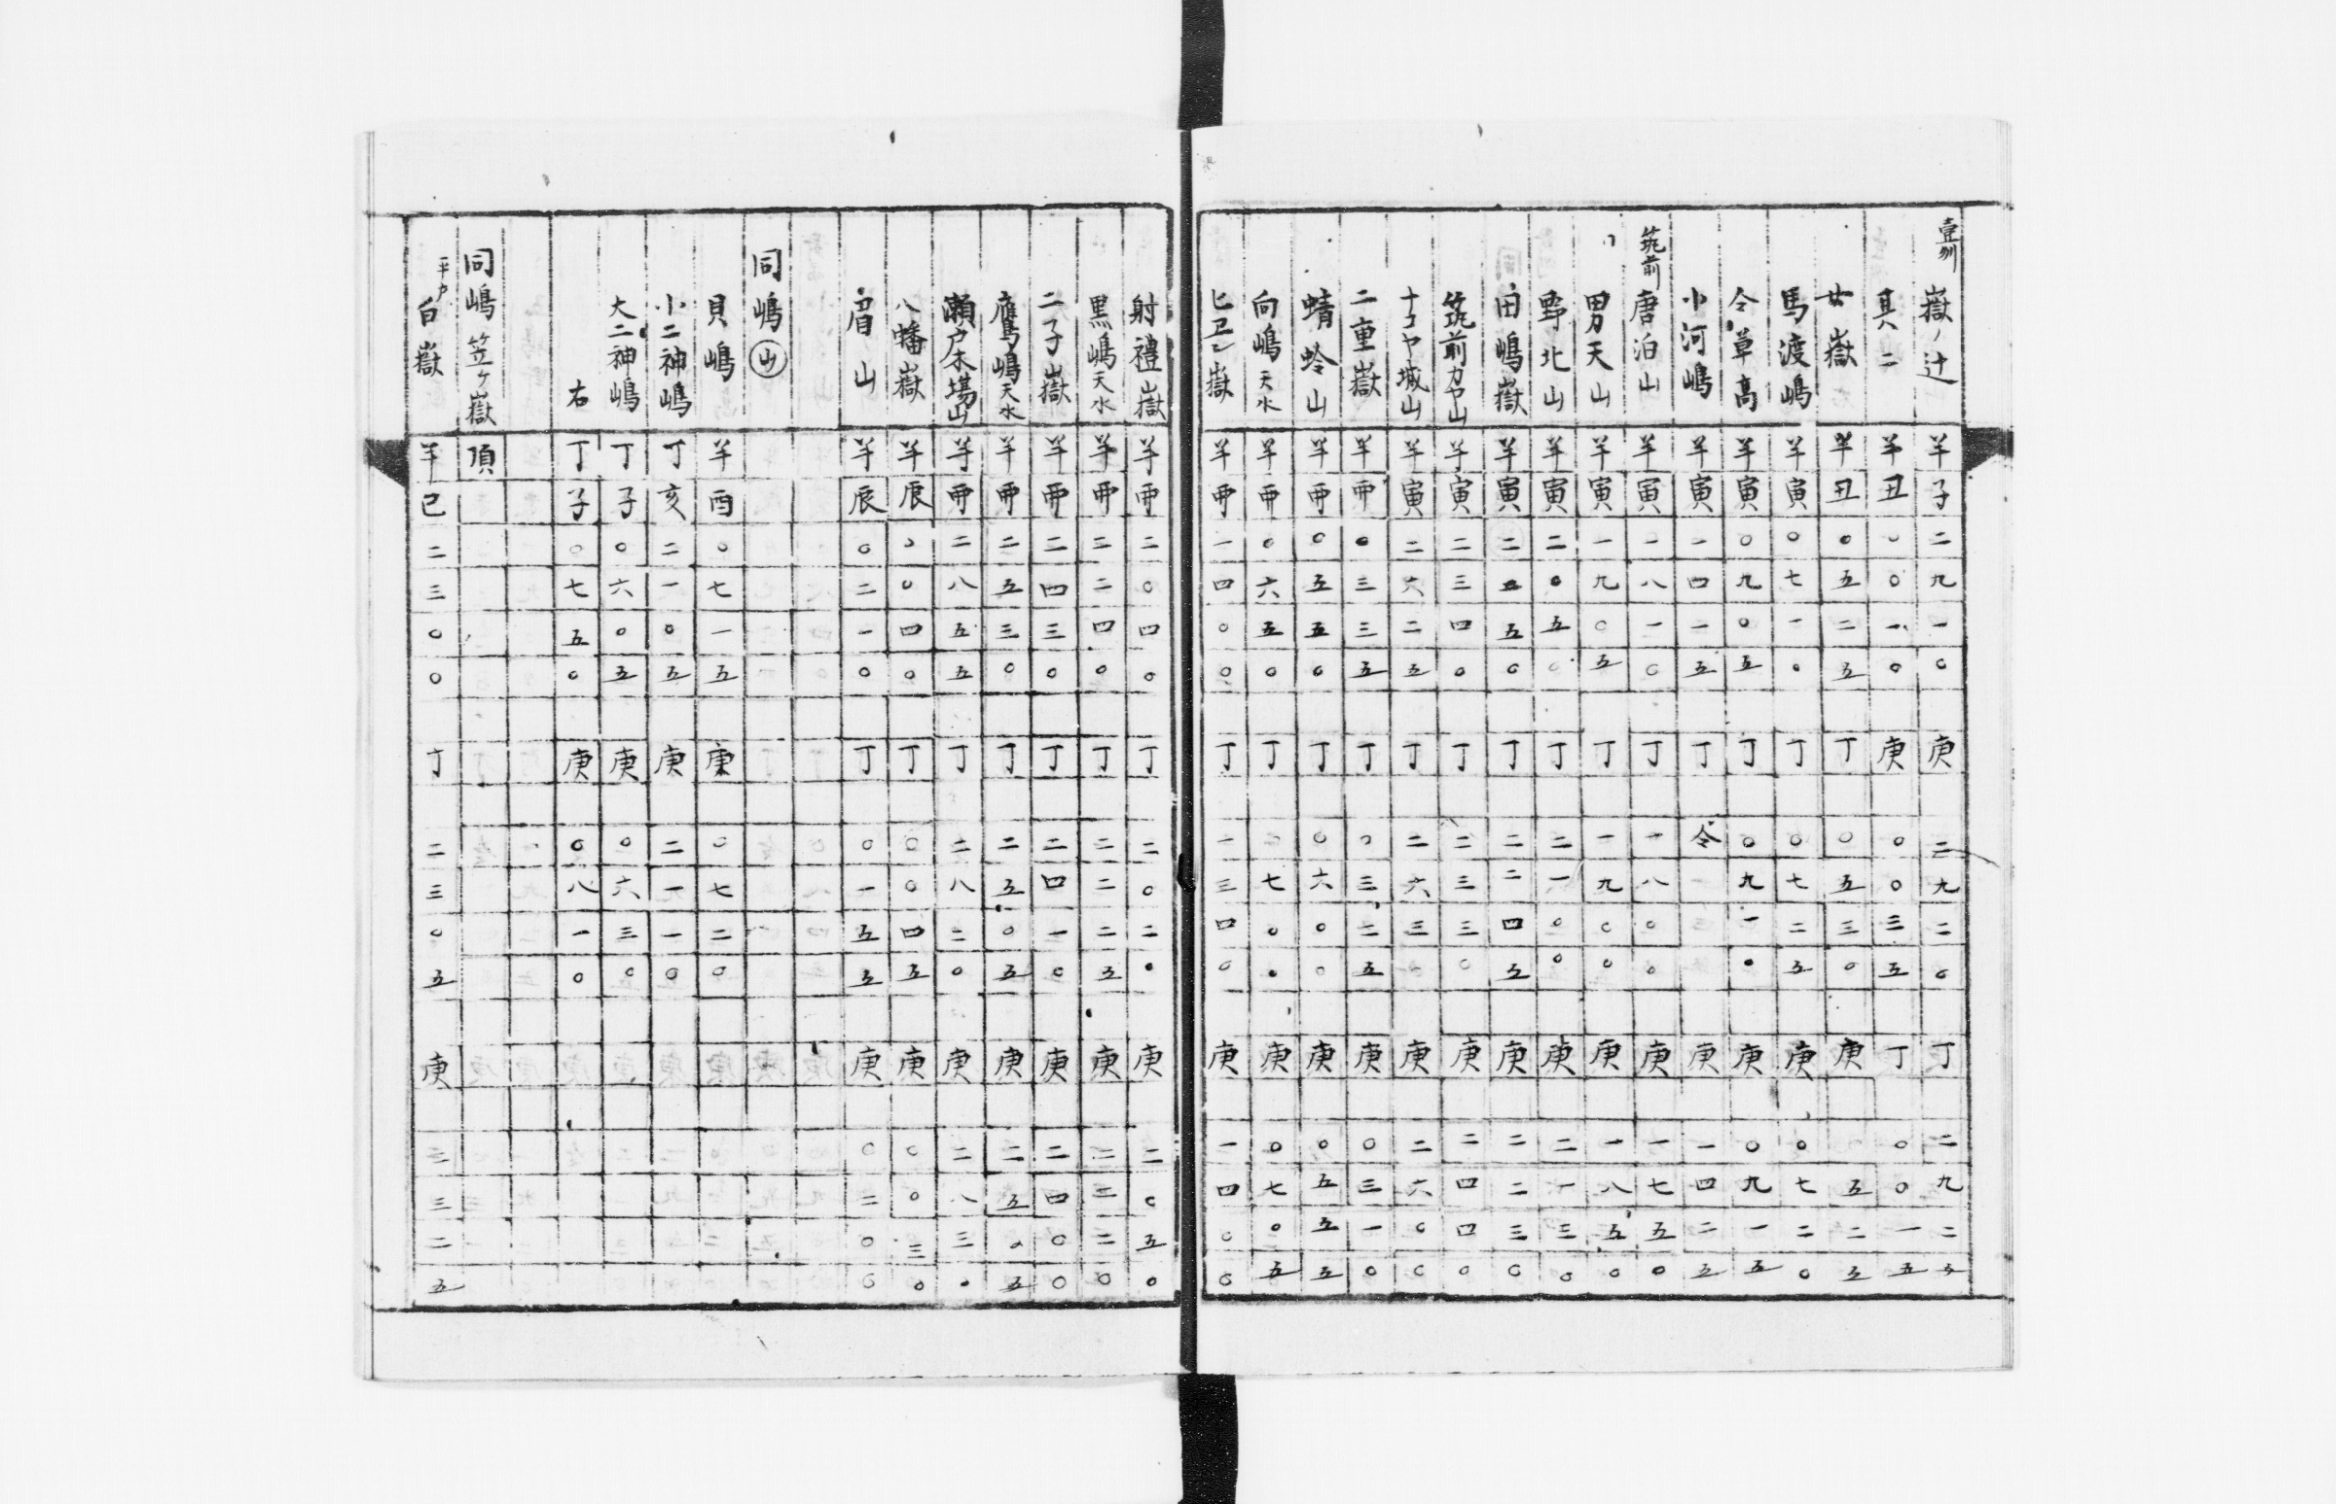 壹州 嶽ノ辻 羊 子 二 九 一 〇 庚 二 九 二 〇 丁 二 九 二 五
其二 羊 丑 〇 〇 一 〇 庚 〇 〇 三 五 丁 〇 〇 一 五
女嶽 羊 丑 〇 五 二 五 丁 〇 五 三 〇 庚 〇 五 二 五
馬渡嶋 羊 寅 〇 七 一 〇 丁 〇 七 二 五 庚 〇 七 二 〇
令草高 羊 寅 〇 九 〇 五 丁 〇 九 一 〇 庚 〇 九 一 五
小河嶋 羊 寅 一 四 一 五 丁 令 庚 一 四 二 五
筑前 唐泊山 羊 寅 一 八 一 〇 丁 一 八 〇 〇 庚 一 七 五 〇
男天山 羊 寅 一 九 〇 五 丁 一 九 〇 〇 庚 一 八 五 〇
野北山 羊 寅 二 〇 五 〇 丁 二 一 〇 〇 庚 二 一 三 〇
田嶋嶽 羊 寅 二 五 五 〇 丁 二 二 四 五 庚 二 二 三 〇
筑前カヤ山 羊 寅 二 三 四 〇 丁 二 三 三 〇 庚 二 四 四 〇
ナコヤ城山 羊 寅 二 六 二 五 丁 二 六 三 庚 二 六 〇 〇
二重嶽 羊 卯 〇 三 三 五 丁 〇 三 二 五 庚 〇 三 一 〇
蜻蛉山 羊 卯 〇 五 五 〇 丁 〇 六 〇 〇 庚 〇 五 五 五
向嶋天水 羊 卯 〇 六 五 〇 丁 〇 七 〇 〇 庚 〇 七 〇 五
嶽 羊 卯 一 四 〇 〇 丁 一 三 四 〇 庚 一 四 〇 〇
射禮嶽 羊 卯 二 〇 四 〇 丁 二 〇 二 〇 庚 二 〇 五 〇
黒嶋天水 羊 卯 二 二 四 〇 丁 二 二 二 五 庚 二 二 二 〇
二子嶽 羊 卯 二 四 三 〇 丁 二 四 一 〇 庚 二 四 〇 〇
鷹嶋天水 羊 卯 二 五 三 〇 丁 二 五 〇 五 庚 二 五 〇 五
瀬戸木場山 羊 卯 二 八 五 五 丁 二 八 二 〇 庚 二 八 三 〇
八幡嶽 羊 辰 〇 〇 四 〇 丁 〇 〇 四 五 庚 〇 〇 三 〇
眉山 羊 辰 〇 二 一 〇 丁 〇 一 五 五 庚 〇 二 〇 〇
同嶋山
貝嶋 羊 酉 〇 七 一 五 庚 〇 七 二 〇
小二神嶋 丁 亥 二 一 〇 五 庚 二 一 一 〇
大二神嶋 丁 子 〇 六 〇 五 庚 〇 六 三 〇
右 丁 子 〇 七 五 〇 庚 〇 八 一 〇
同嶋笠ヶ嶽頂
平戸 白嶽 羊 巳 二 三 〇 〇 丁 二 三 〇 五 庚 二 三 二 五